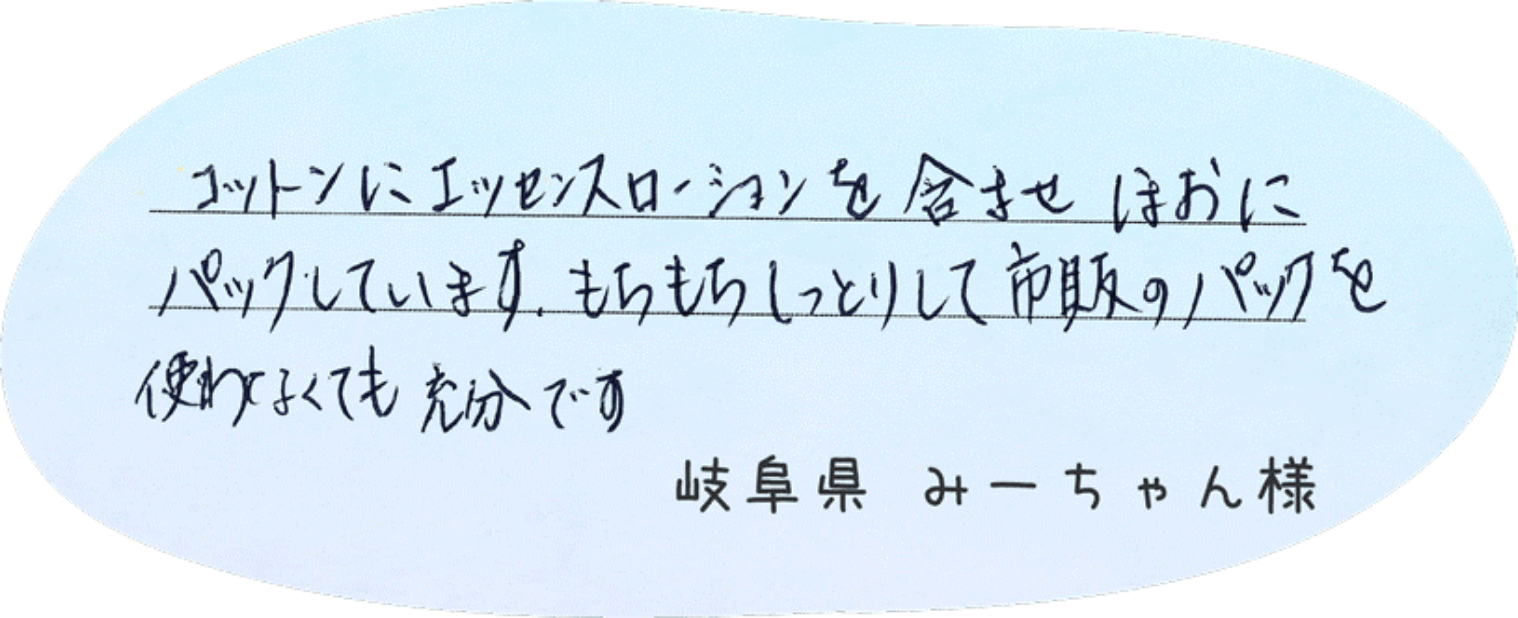 コットンにエッセンスローションを含ませ ほおに
パックしています.もちもちしっとりして市販のパックを
使わなくても充分です
岐阜県 みーちゃん様